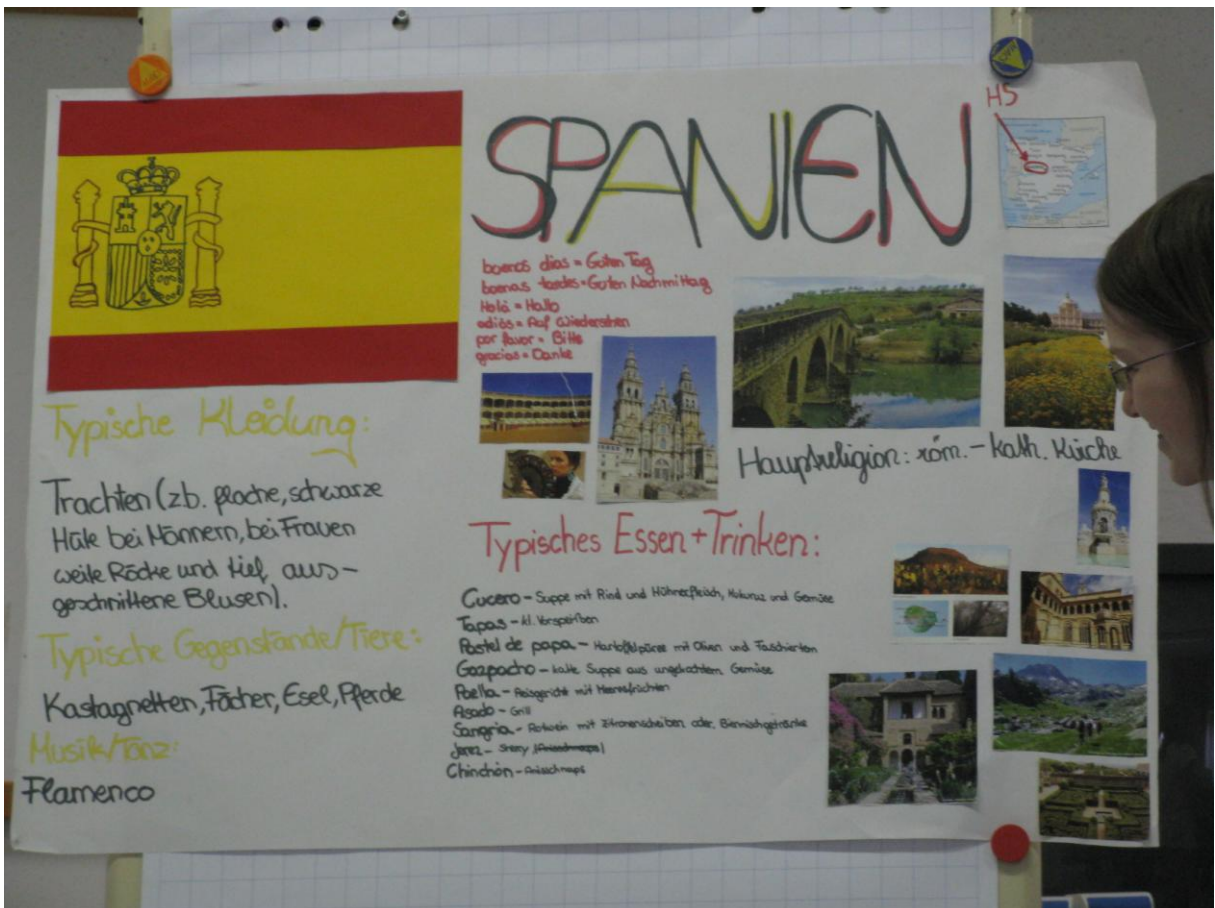 SPANIEN
HS
buenos dias = Guten Tag
buenas tardes = Guten Nachmittag
Holá = Hallo
adiós = Auf Wiedersehen
por favor = Bitte
gracias = Danke
Typische Kleidung:
Trachten (z.b. flache, schwarze
Hüte bei Männern, bei Frauen
weite Röcke und tief aus-
geschnittene Blusen).
Typische Gegenstände/Tiere:
Kastagnetten, Fächer, Esel, Pferde
Musik/Tanz:
Flamenco
Hauptreligion: röm.-kath. Kirche
Typisches Essen+Trinken:
Cucero - Suppe mit Rind und Hühnerfleisch, Kukuruz und Gemüse
Tapas - kl. Vorspeißen
Pastel de papa - Kartoffelpüree mit Oliven und Faschiertem
Gazpacho - kalte Suppe aus ungekochtem Gemüse
Paella - Reisgericht mit Meeresfrüchten
Asado - Grill
Sangria - Rotwein mit Zitronenscheiben oder Biermischgetränke
Jerez - Sherry (Anisschnaps)
Chinchón - Anisschnaps